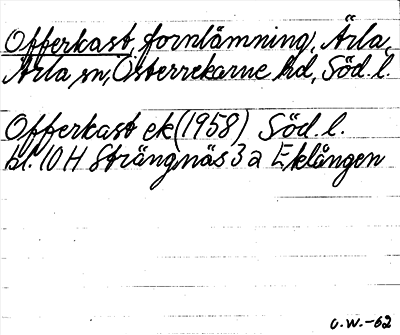 Offerkast, fornlämning, Ärla,
Ärla sn, Österrekarne hd, Söd. l.
Offerkast ek (1958) Söd. l.
bl. 10 H Strängnäs 3 a Eklången
O.W.-62